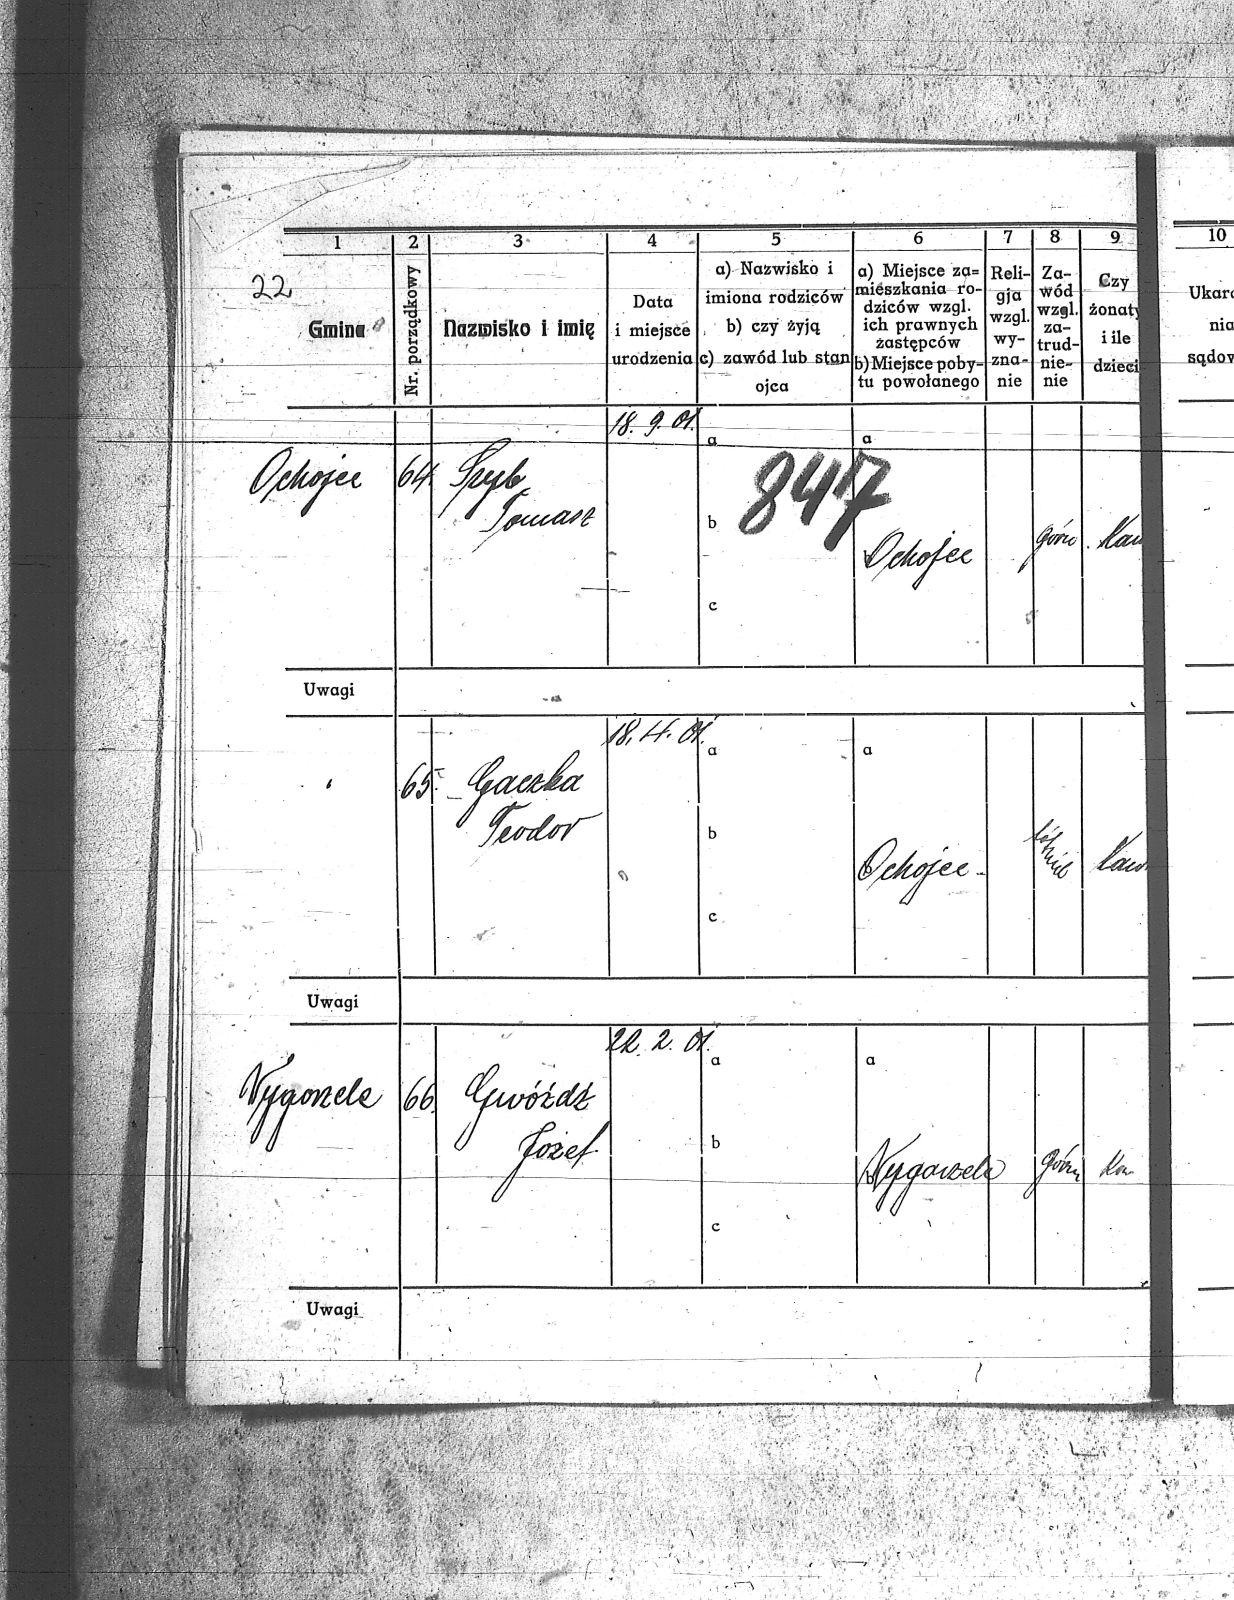 1 2 3 4 5 6 7 8 9 10
22
Gmina
Nr. porządkowy
Nazwisko i imię
Data
i miejsce
urodzenia
a) Nazwisko i
imiona rodziców
b) czy żyją
c) zawód lub stan
ojca
a) Miejsce za=
mieszkania ro-
dziców wzgl.
ich prawnych
zastępców
b) Miejsce poby-
tu powołanego
Reli-
gja
wzgl.
wy-
zna-
nie
Za-
wód
wzgl.
za-
trud-
nie-
nie
Czy
żonaty
i ile
dzieci
Ukara
nia
sądow
18. 9. 01.
a a
Ochojec 64. Szyb
Tomasz
847
b
b Ochojec górn. Kaw
c
Uwagi
18. 4. 01.
a a
65. Gaczka
Teodor
b
b Ochojec Kaw
c
Uwagi
22. 2. 01.
a a
66. Gwóźdź
Józef
b
b górn Kaw
c
Uwagi